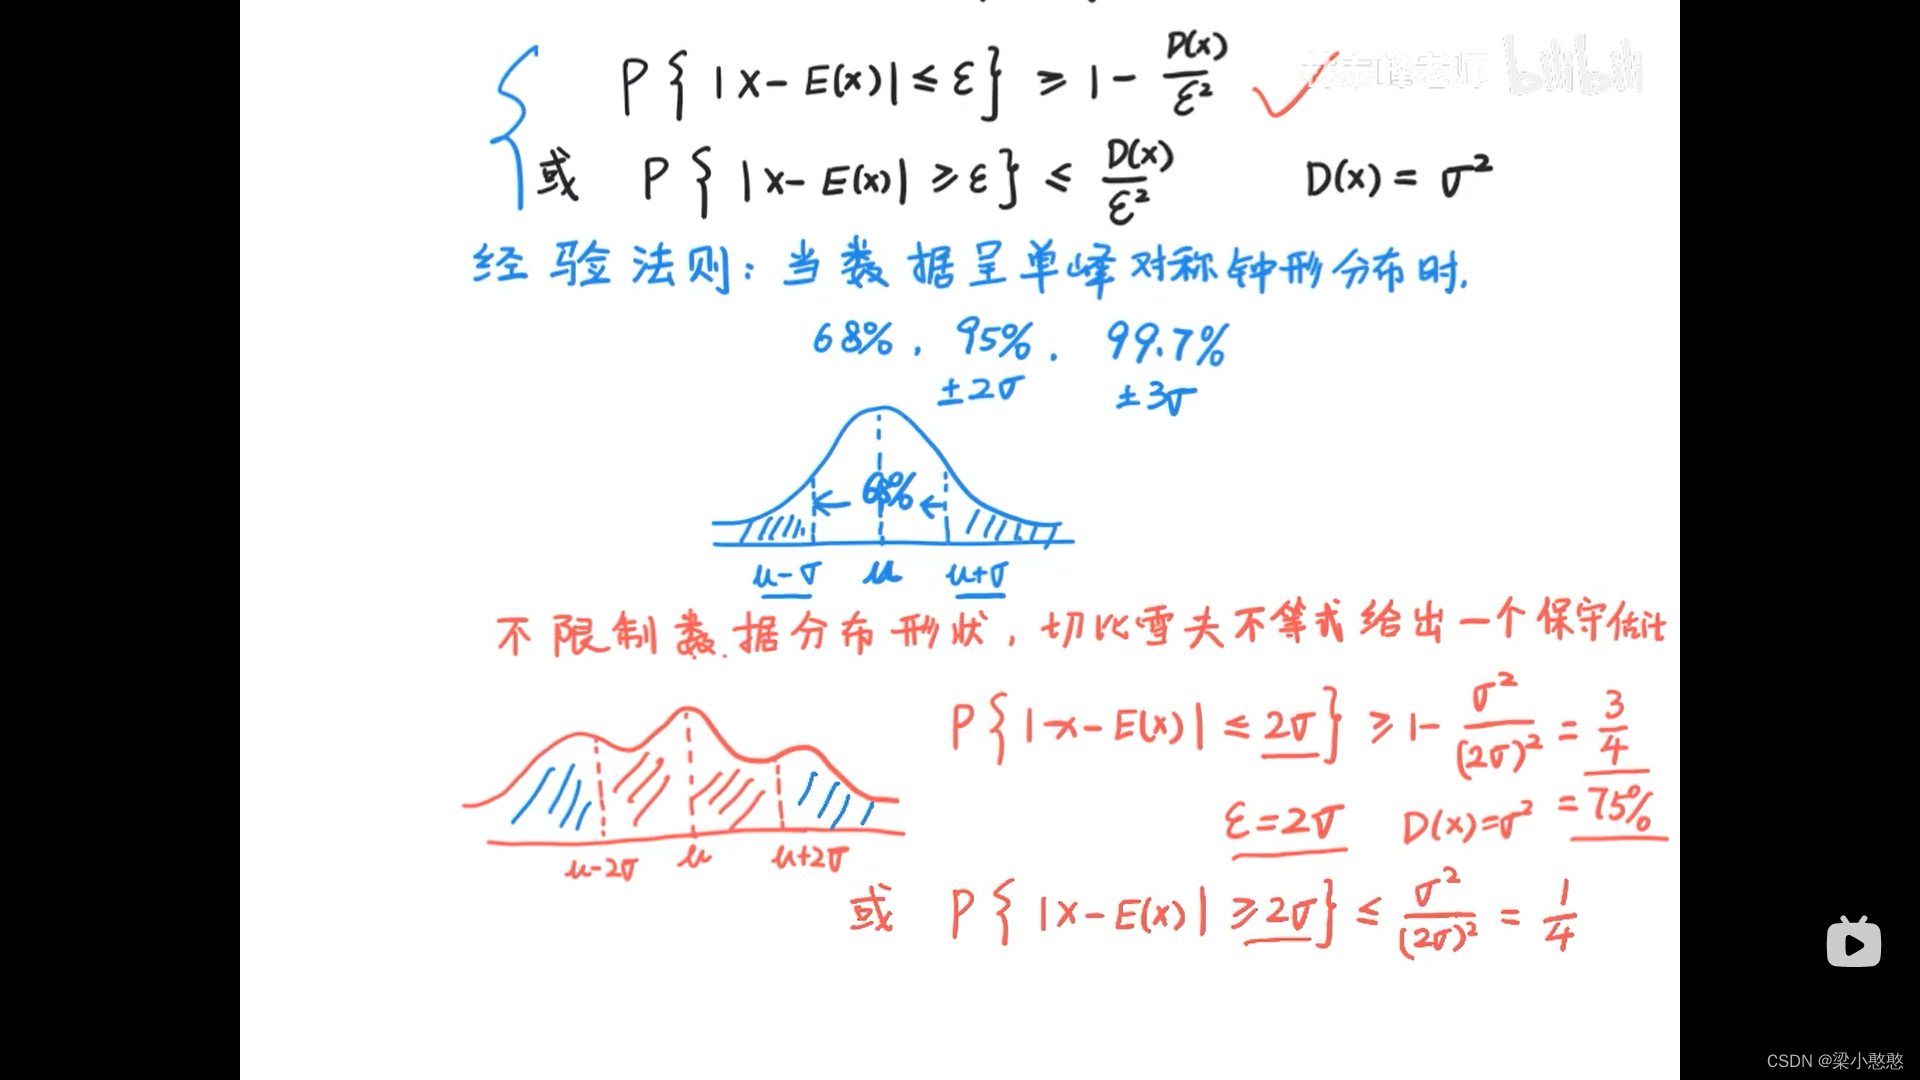 P{|X-E(x)|≤ε} ≥ 1-D(x)/ε²
峰老师 bilibili
或 P{|X-E(x)|≥ε} ≤ D(x)/ε² D(x)=σ²
经验法则:当数据呈单峰对称钟形分布时.
68%, 95%. 99.7%
±2σ ±3σ
68%
μ-σ μ μ+σ
不限制数据分布形状,切比雪夫不等式给出一个保守估计
P{|x-E(x)|≤2σ} ≥ 1-σ²/(2σ)² = 3/4
= 75%
ε=2σ D(x)=σ²
μ-2σ μ μ+2σ
或 P{|X-E(x)|≥2σ} ≤ σ²/(2σ)² = 1/4
CSDN @梁小憨憨